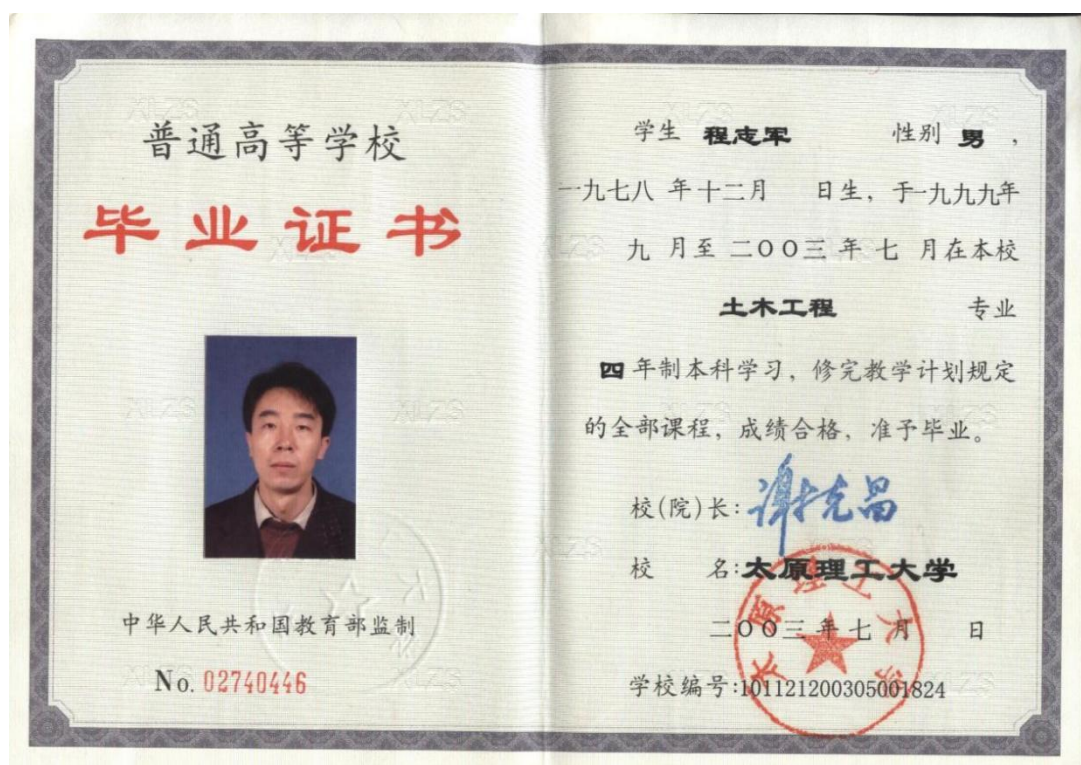 普通高等学校
毕业证书
中华人民共和国教育部监制
No. 02740446
学生 程志军 性别 男，
一九七八 年十二月 日生，于一九九九年
九 月至 二〇〇三 年 七 月在本校
土木工程 专业
四 年制本科学习，修完教学计划规定
的全部课程，成绩合格，准予毕业。
校(院)长: 谢克昌
校 名:太原理工大学
二〇〇三年七月 日
学校编号:101121200305001824
太原理工大学
XLZS